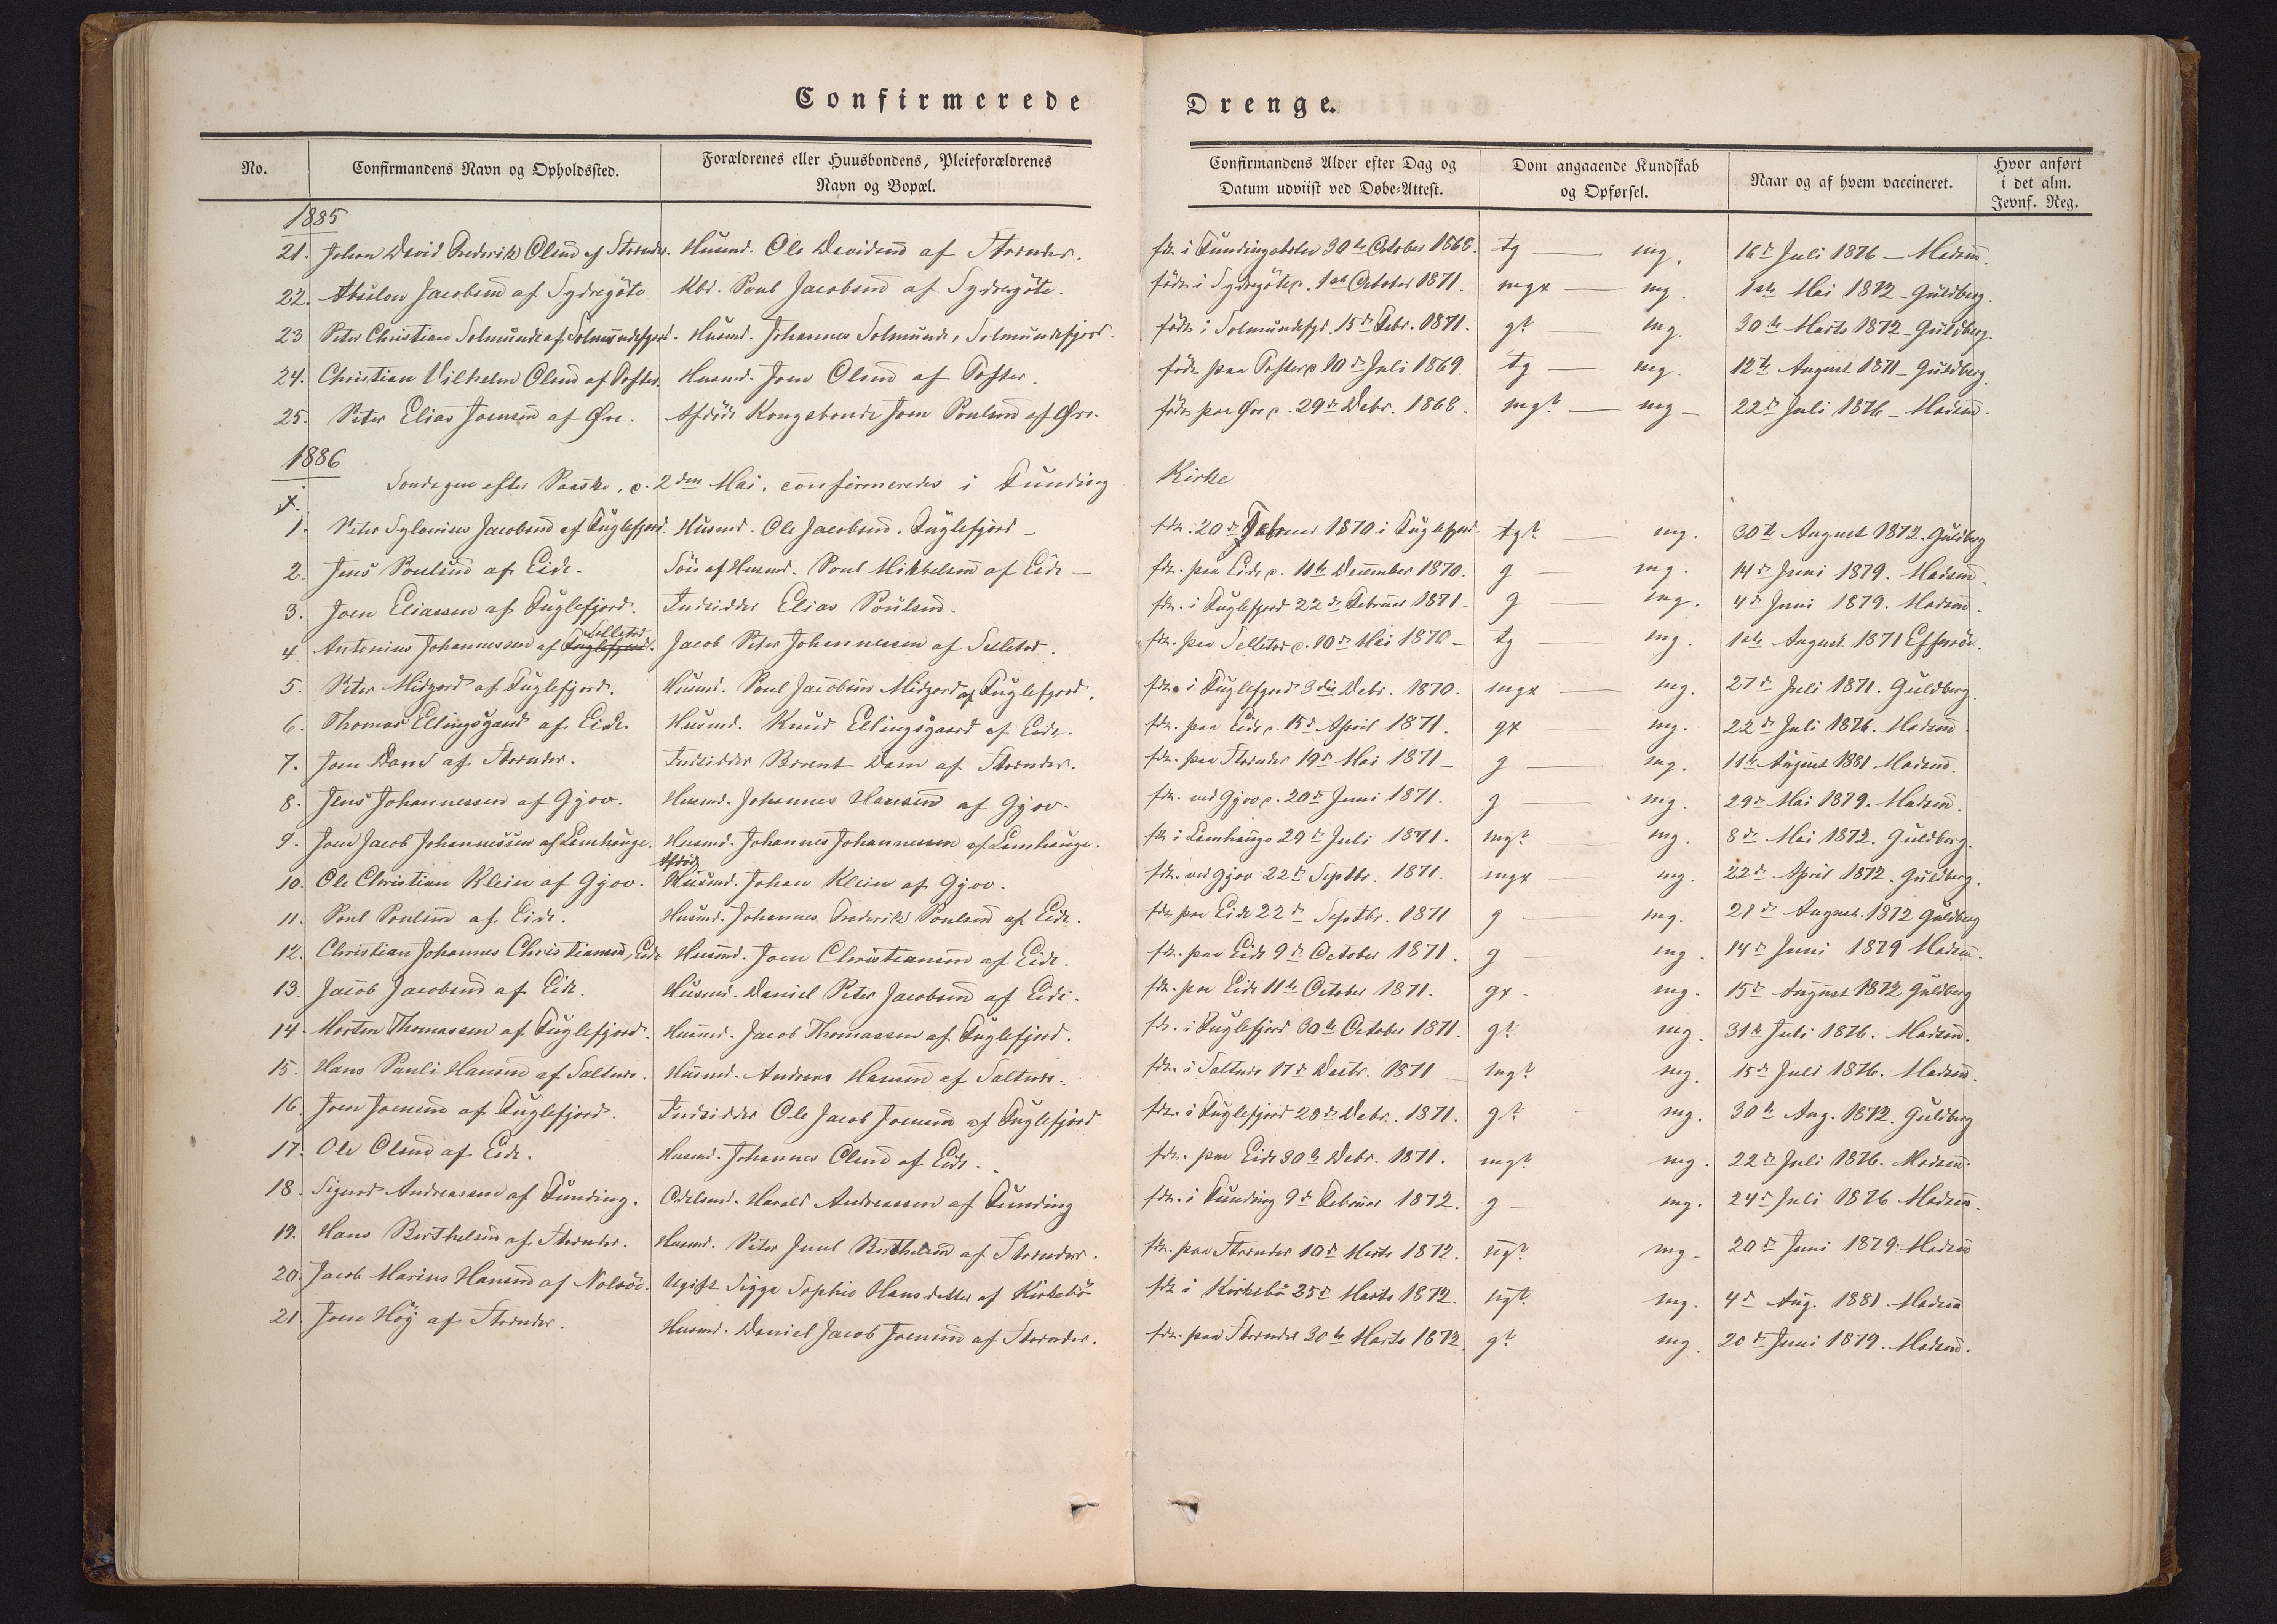 Confirmerede Drenge.
No. Confirmandens Navn og Opholdssted. Forældrenes eller Huusbondens, Pleieforældrenes Navn og Bopæl. Confirmandens Alder efter Dag og Datum udviist ved Døbe-Attest. Dom angaaende Kundskab og Opførsel. Naar og af hvem vaccineret. Hvor anført i det alm. Jevnf. Reg.
1885
21. Johan David Frederik Olsen af Strender. Husmd. Ole Davidsen af Strender. fdt. i 30te October 1868. tg — mg. 16de Juli 1876 — Madsen.
22. Absalon Jacobsen af Sydregöte. Kbd. Poul Jacobsen af Sydregöte. födt i Sydregöte, 1ste October 1871. mgx — mg. 1ste Mai 1872 — Guldberg.
23 Peter Christian Solmunde af Solmundefjord. Husmd. Johannes Solmunde, Solmundefjord. födt i Solmundefjd. 15de Febr. 1871. g? — mg. 30te Marts 1872 — Guldberg.
24. Christian Vilhelm Olsen af Tofter. Husmd. Joen Olsen af Tofter. födt paa Tofter d 10de Juli 1869. tg — mg. 12te August 1871 — Guldberg.
25. Peter Elias Joensen af Øre. Afdöde Kongsbonde Joen Poulsen af Øre. födt paa Øre d. 29de Debr. 1868. mg? — mg — 22de Juli 1876 — Madsen.
1886
Söndagen efter Paaske, d. 2den Mai, confirmeredes i Funding Kirke
x.
1. Peter Sylverius Jacobsen af Fuglefjord. Husmd. Ole Jacobsen. Fuglefjord — fdt. 20de Februar 1870 i Fuglefjord. tg? — mg. 30te August 1872. Guldberg
2. Jens Poulsen af Eide. Sön af Husmd. Poul Mikkelsen af Eide — fdt. paa Eide d. 11te December 1870. g — mg. 14de Juni 1879. Madsen.
3. Joen Eliassen af Fuglefjord. Indsidder Elias Poulsen. fdt. i Fuglefjord 22de Februar 1871. g — mg. 4de Juni 1879. Madsen.
4 Antonius Johannessen af Fuglefjord. Selletræ Jacob Peter Johannessen af Selletræ. fdt. paa Selletræ d. 10de Mai 1870 — tg — mg. 1ste August 1871
5. Peter Midgord af Fuglefjord. Husmd. Poul Jacobsen Midgord af Fuglefjord. fdt. i Fuglefjord 3die Debr. 1870. mgx — mg. 27de Juli 1871. Guldberg.
6. Thomas Ellingsgaard af Eide. Husmd. Knud Ellingsgaard af Eide. fdt. paa Eide d. 15de April 1871. gx — mg. 22de Juli 1876. Madsen.
7. Joen Dam af Strender. Indsidder Dam af Strender. fdt. paa Strender 19de Mai 1871 — g — mg. 11te August 1881 Madsen.
8. Jens Johannessen af Gjov. Husmd. Johannes Hansen af Gjov. fdt. ved Gjov d. 20de Juni 1871. g — mg. 29de Mai 1879. Madsen.
9. Joen Jacob Johannessen af Lamhauge. Husmd. Johannes Johannessen af Lamhauge. fdt. i Lamhauge 29de Juli 1871. mg? mg. 8de Mai 1872. Guldberg.
10. Ole Christian Klein af Gjov. Afdöde Husmd. Johan Klein af Gjov. fdt. ved Gjov 22de Septbr. 1871. mgx — mg. 22de April 1872. Guldberg.
11. Poul Poulsen af Eide. Husmd. Johannes Frederik Poulsen af Eide. fdt. paa Eide 22de Septbr. 1871 g — mg. 21de August. 1872 Guldberg
12. Christian Johannes Christiansen, Eide Husmd. Joen Christiansen af Eide. fdt. paa Eide 9de October 1871. g — mg. 14de Juni 1879 Madsen.
13. Jacob Jacobsen af Eide. Husmd. Daniel Peter Jacobsen af Eide. fdt. paa Eide 11te October 1871. gx — mg. 15de August 1872 Guldberg
14. Morten Thomassen af Fuglefjord. Husmd. Jacob Thomassen af Fuglefjord. fdt. i Fuglefjord 30te October 1871. g? mg. 31te Juli 1876. Madsen.
15. Hans Pauli Hansen af Saltnes. Husmd. Andreas Hansen af Saltnes. fdt. i Saltnes 17de Decbr. 1871 — mg? mg. 15de Juli 1876. Madsen.
16. Joen Joensen af Fuglefjord. Indsidder Ole Jacob Joensen af Fuglefjord fdt. i Fuglefjord 28de Debr. 1871. g? mg. 30te Aug. 1872. Guldberg
17. Ole Olsen af Eide. Husmd. Johannes Olsen af Eide. fdt. paa Eide 30te Debr. 1871. mg? mg. 22de Juli 1876. Madsen.
18. Sigurd Andreassen af Funding. Odelsmd. Harald Andreassen af Funding fdt. i Funding 9de Februar 1872. g — mg. 24de Juli 1876 Madsen.
19. Hans Berthelsen af Strender. Husmd. Peter Juul Berthelsen af Strender. fdt. paa Strender 10de Marts 1872. ug? mg. 20de Juni 1879. Madsen
20. Jacob Marius Hansen af Nolsöe. Ugift Sigga Sophie Hansdatter af Kirkebö fdt i Kirkebö 25de Marts 1872. ug? mg. 4de Aug. 1881 Madsen
21. Joen Höj af Strender. Husmd. Daniel Jacob Joensen af Strender. fdt. paa Strender 30te Marts 1872. g? mg. 20de Juni 1879. Madsen.